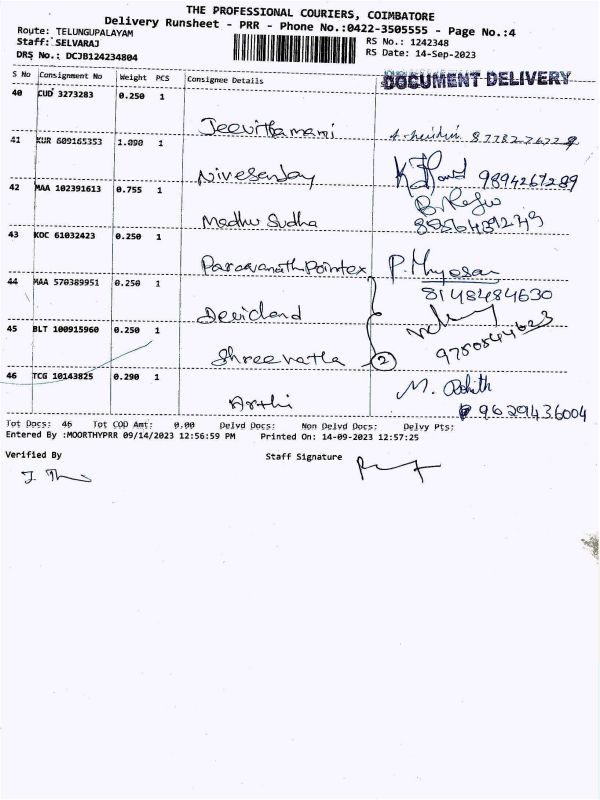 THE PROFESSIONAL COURIERS, COIMBATORE
Delivery Runsheet - PRR - Phone No.:0422-3505555 - Page No.:4
Route: TELUNGUPALAYAM
Staff: SELVARAJ
DRS No.: DCJB124234804
RS No.: 1242348
RS Date: 14-Sep-2023
S No Consignment No Weight PCS Consignee Details DOCUMENT DELIVERY
40 CUD 3273283 0.250 1
Jeevithamani
41 KUR 609165353 1.090 1
Nivesanjay 9894267289
42 MAA 102391613 0.755 1
Madhu Sudha
43 KOC 61032423 0.250 1
Parasvanath Pointex
44 MAA 570389951 0.250 1 8148484630
Devichand
45 BLT 100915960 0.250 1
Shreevatla 2 9750544623
46 TCG 10143825 0.290 1
Arthi 9629436004
Tot Docs: 46 Tot COD Amt: 0.00 Delvd Docs: Non Delvd Docs: Delvy Pts:
Entered By :MOORTHYPRR 09/14/2023 12:56:59 PM Printed On: 14-09-2023 12:57:25
Verified By Staff Signature